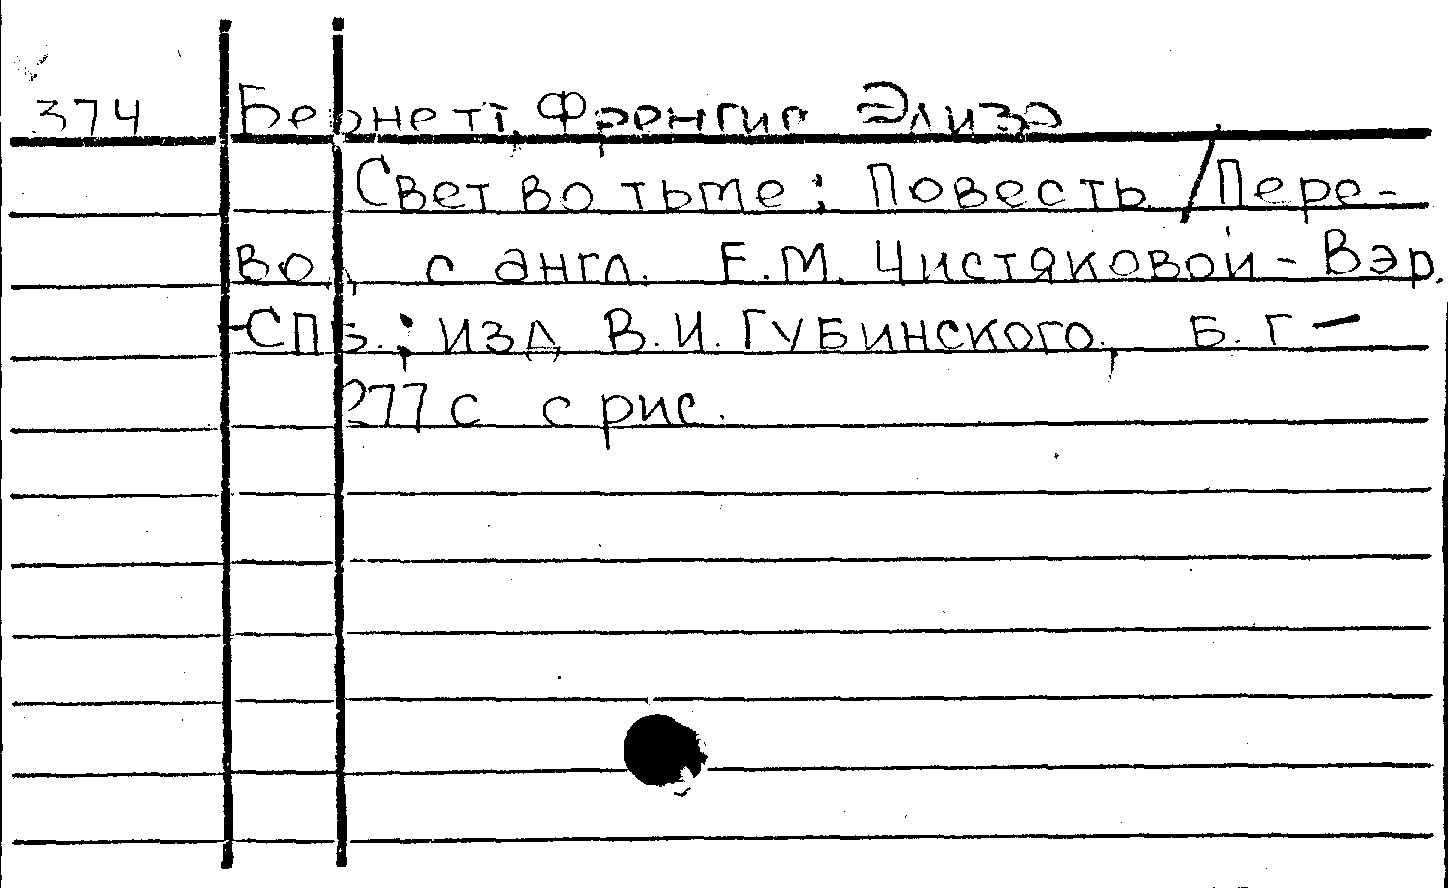 374 Бернетт, Фрэнгис Элиза
Свет во тьме: Повесть / Пере-
вод с англ. Е.М. Чистяковой-Вэр.
-СПБ.: изд В.И. Губинского, Б. Г -
277 с с рис.